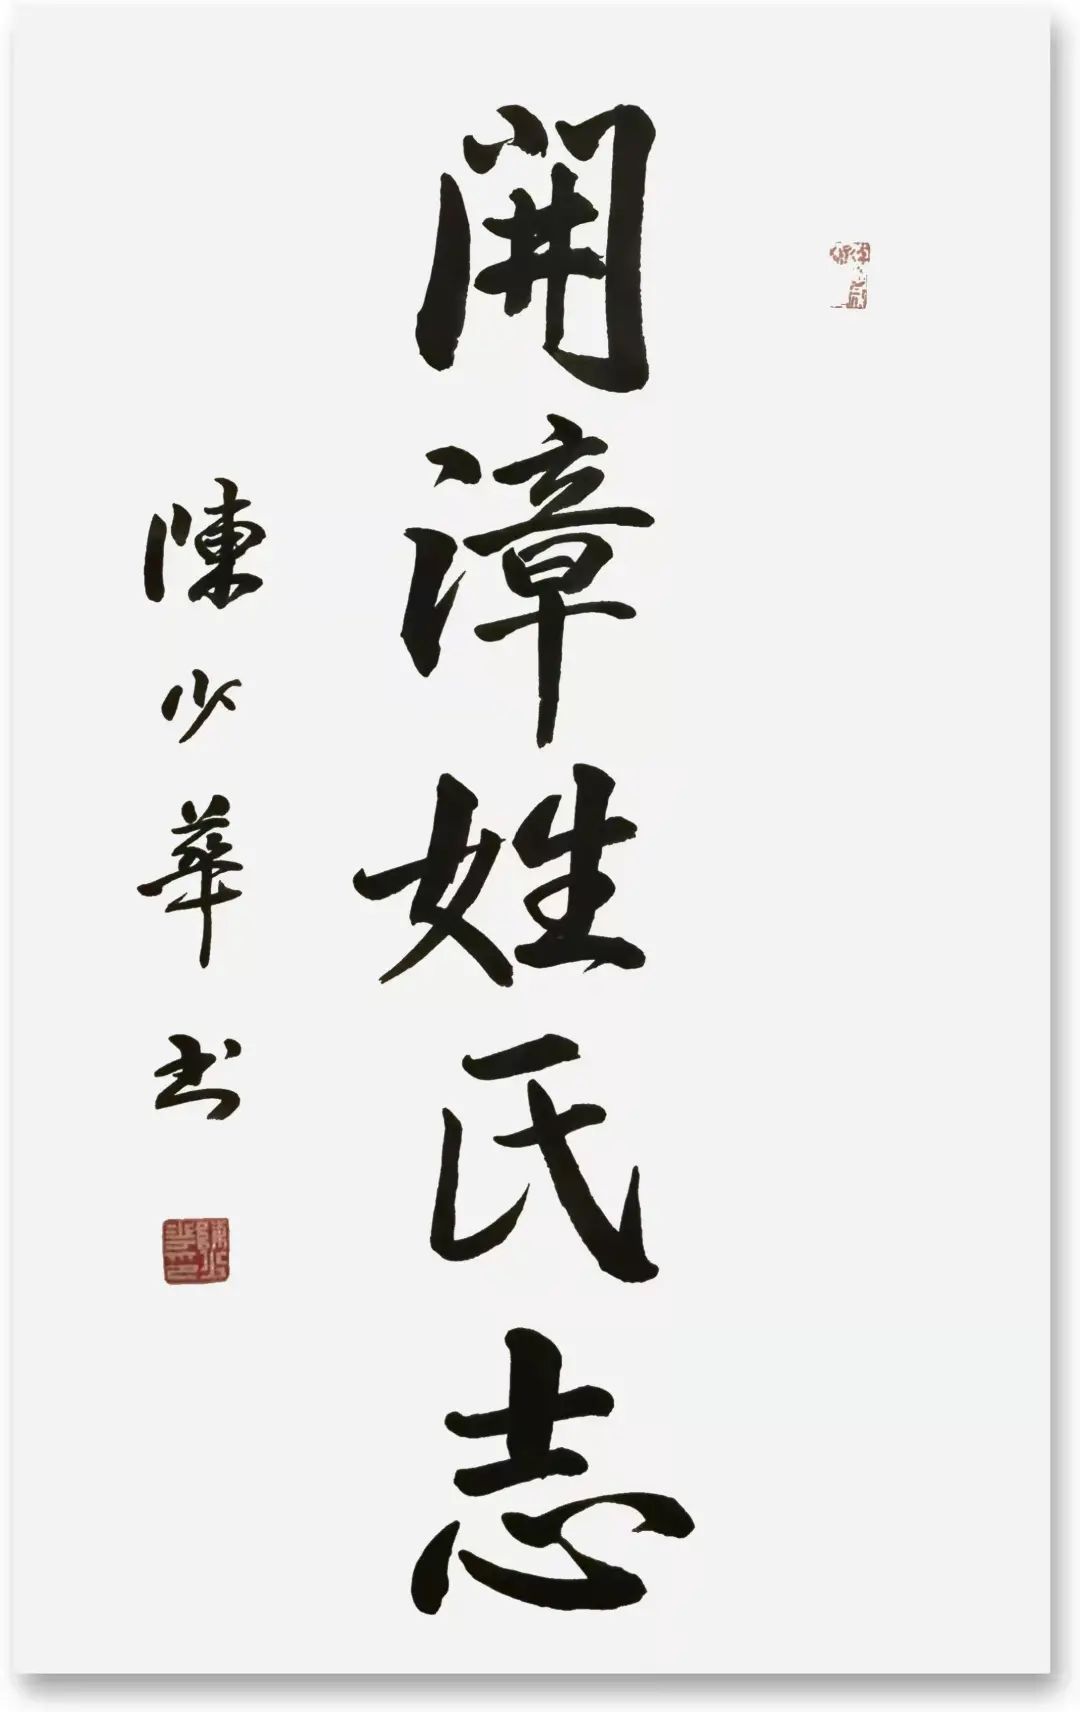 開漳姓氏志
陳少華书